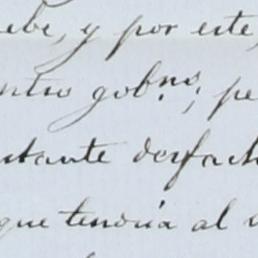 ebe, y por este,
ntro gob.no; pe
stante desfach
que tendría al